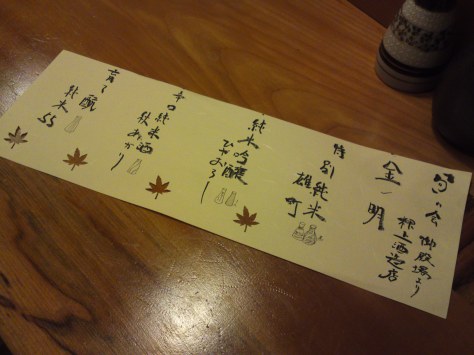 旬の会 御殿場より
根上酒造店
金明
特別純米
雄町
純米吟醸
ひやおろし
辛口純米酒
秋あがり
純米55